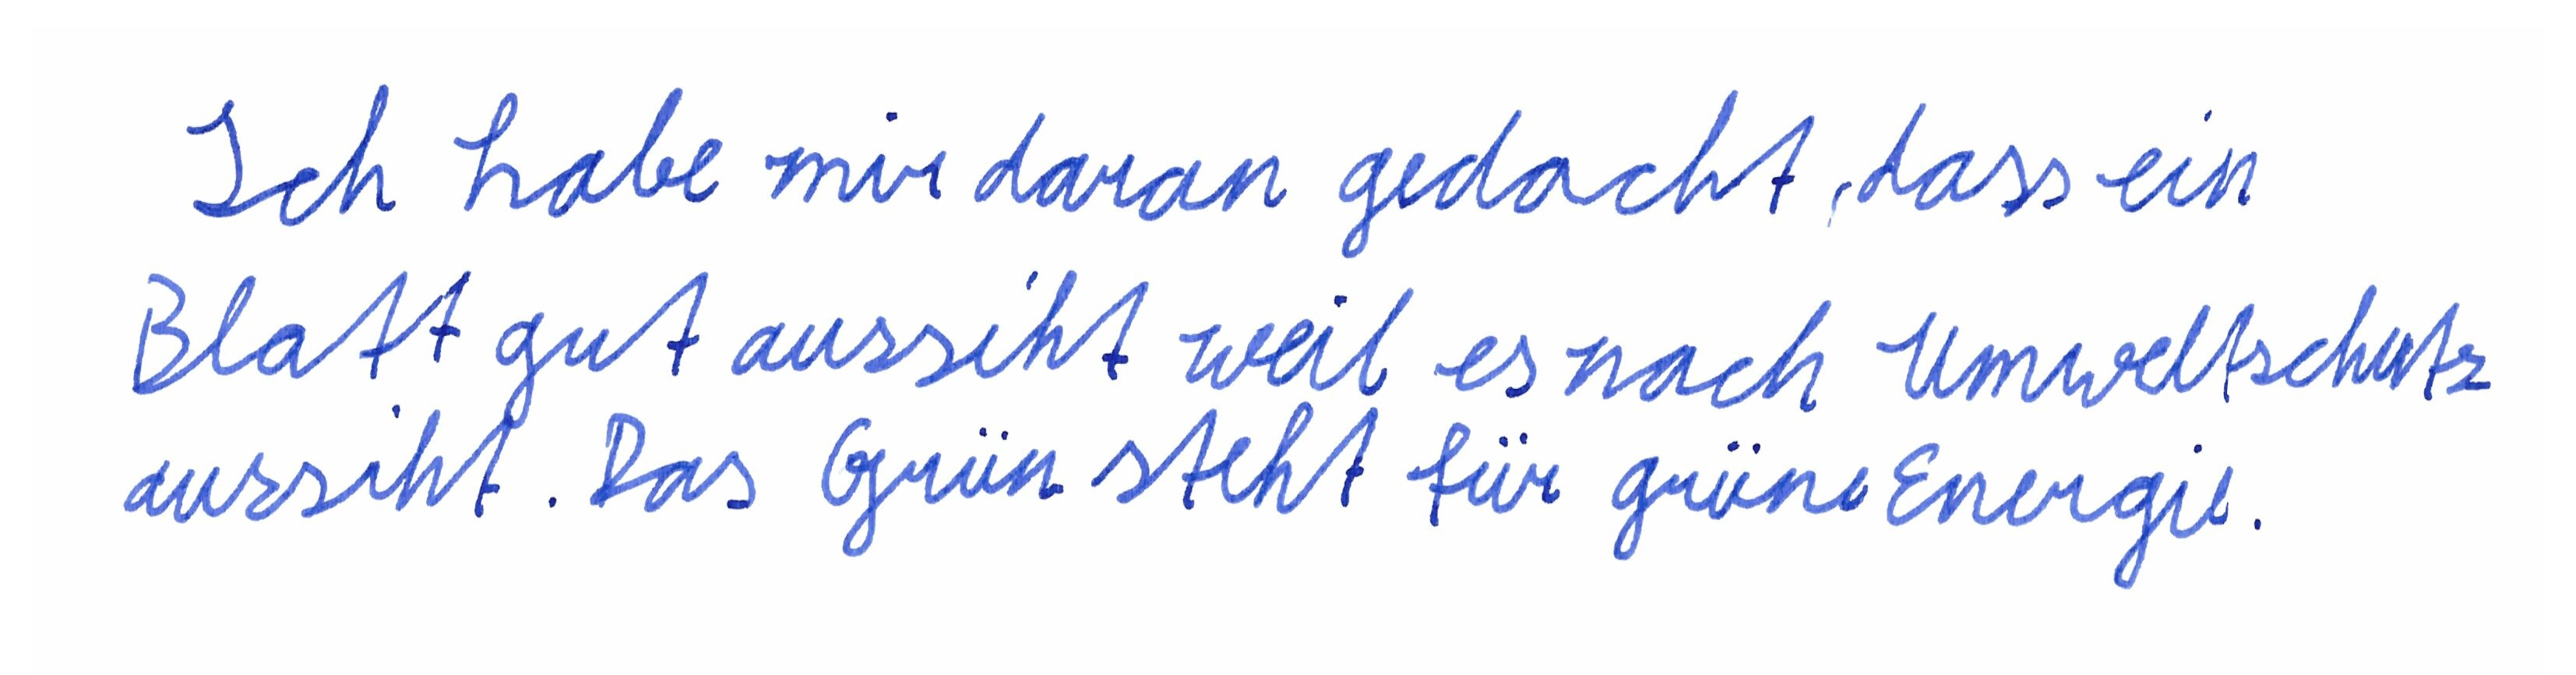 Ich habe mir daran gedacht, dass ein
Blatt gut aussiht weil es nach Umweltschutz
aussiht. Das Grün steht für grüne Energie.